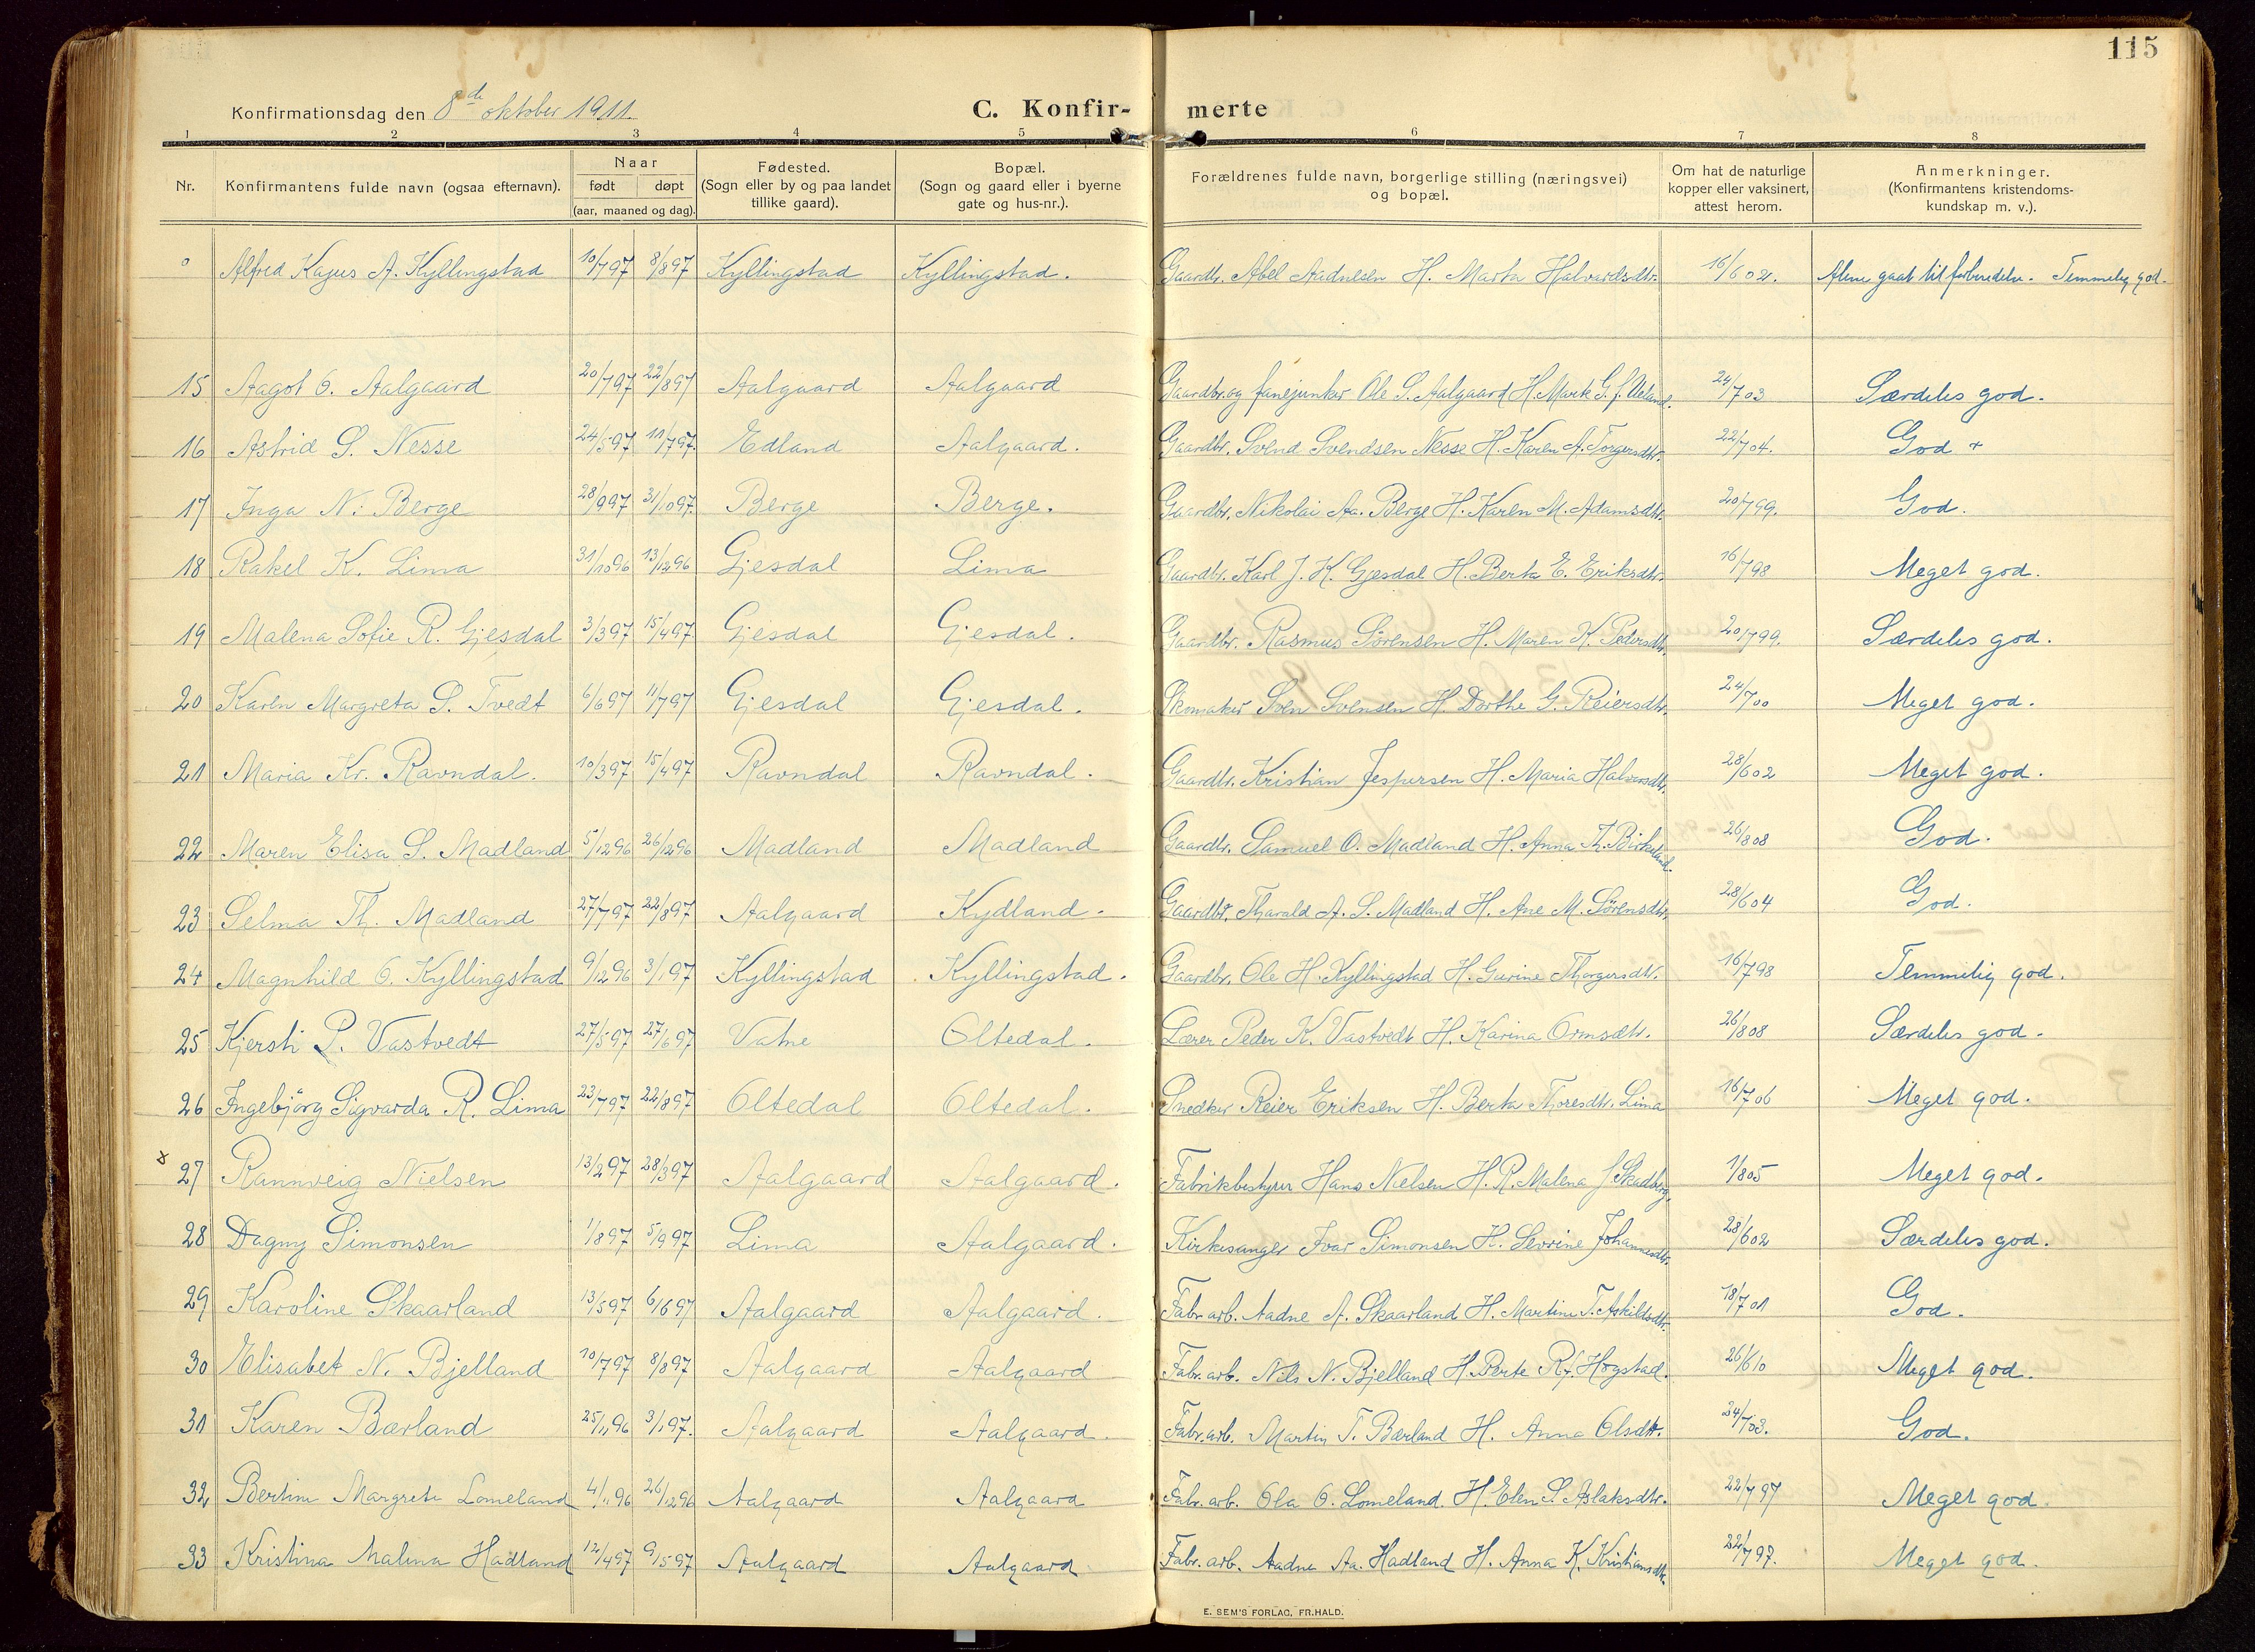 115
Konfirmationsdag den 8de oktober 1911.
C. Konfir- merte
1 2 3 4 5 6 7 8
Nr. Konfirmantens fulde navn (ogsaa efternavn). Naar født døpt (aar, maaned og dag). Fødested. (Sogn eller by og paa landet tillike gaard). Bopæl. (Sogn og gaard eller i byerne gate og hus-nr.). Forældrenes fulde navn, borgerlige stilling (næringsvei) og bopæl. Om hat de naturlige kopper eller vaksinert, attest herom. Anmerkninger. (Konfirmantens kristendoms- kundskap m. v.).
° Alfred Kajus A. Kyllingstad 10/797 8/897 Kyllingstad Kyllingstad. Gaardbr. Abel Aadnesen H. Marta Halvardsdtr. 16/602. Alene gaat til forberedelse. Temmelig god.
15 Aagot O. Aalgaard 20/797 22/897 Aalgaard Aalgaard Gaardbr. og fanejunker Ole S. Aalgaard H. Marte G. f. Ueland. 24/703 Særdeles god.
16 Astrid S. Nesse 24/597 11/797. Edland Aalgaard. Gaardbr. Svend Svendsen Nesse H. Karen A. Torgersdtr. 22/704. God +
17 Inga N. Berge 28/997 31/1097. Berge Berge. Gaardbr. Nikolai Aa. Berge H. Karen M. Adamsdtr. 20/799. God.
18 Rakel K. Lima 31/1096 13/1296 Gjesdal Lima Gaardbr. Karl J. K. Gjesdal H. Berta E. Eriksdtr. 16/798 Meget god.
19 Malena Sofie R. Gjesdal 3/397 15/497. Gjesdal Gjesdal. Gaardbr. Rasmus Sörensen H. Maren K. Pedersdtr. 20/799. Særdeles god.
20 Karen Margreta S. Tvedt 6/697 11/797 Gjesdal Gjesdal. Skomaker Sven Svensen H. Dorthe G. Reiersdtr. 24/700 Meget god.
21 Maria Kr. Ravndal. 10/397 15/497 Ravndal Ravndal. Gaardbr. Kristian Jespersen H. Maria Halvorsdtr. 28/602 Meget god.
22 Maren Elisa S. Madland 5/1296 26/1296 Madland Madland Gaardbr. Samuel O. Madland H. Anna Th. Birkeland. 26/808 God.
23 Selma Th. Madland 27/797 22/897 Aalgaard Kydland. Gaardbr. Tharald A. S. Madland H. Ane M. Sörensdtr. 28/604 God.
24 Magnhild O. Kyllingstad 9/1296 3/197 Kyllingstad Kyllingstad. Gaardbr. Ole H. Kyllingstad H. Gurine Thorgersdtr. 16/798 Temmelig god.
25 Kjersti P. Vastvedt 27/597 27/697 Vatne Oltedal. Lærer Peder K. Vastvedt H. Karina Ormsdtr. 26/808 Særdeles god.
26 Ingebjörg Sigvarda R. Lima 23/797 22/897 Oltedal Oltedal. Snedker Reier Eriksen H. Berta Thoresdtr. Lima 16/706 Meget god.
x 27 Rannveig Nielsen 13/297 28/397 Aalgaard Aalgaard. Fabrikbestyrer Hans Nielsen H. R. Malena f Skadberg. 1/805 Meget god.
28 Dagny Simonsen 1/897 5/997 Lima Aalgaard. Kirkesanger Ivar Simonsen H. Sevrine Johannesdtr. 28/602 Særdeles god.
29 Karoline Skaarland 13/597 6/697 Aalgaard Aalgaard. Fabr. arb. Aadne A. Skaarland H. Martine T. Askildsdtr. 18/701 God.
30 Elisabet N. Bjelland 10/797 8/897 Aalgaard Aalgaard Fabr. arb. Nils N. Bjelland H. Berte R. f. Hogstad. 26/610 Meget god.
31 Karen Bærland 25/1196 3/197. Aalgaard Aalgaard. Fabr. arb. Martin T. Bærland H. Anna Olsdtr. 24/703. God.
32 Bertine Margrete Lomeland 4/1196 26/1296 Aalgaard Aalgaard Fabr. arb. Ola O. Lomeland. H. Elen S. Aslaksdtr. 22/797 Meget god.
33 Kristina Malina Hadland 12/497 9/597 Aalgaard Aalgaard Fabr. arb. Aadne Aa. Hadland H. Anna K. Kristiansdtr. 22/797. Meget god.
E. SEM'S FORLAG, FR.HALD.